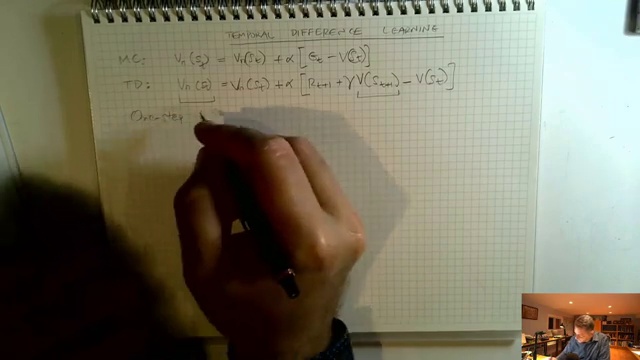 TEMPORAL DIFFERENCE LEARNING
MC: Vπ(St) = Vπ(St) + α [Gt − V(St)]
TD: Vπ(St) = Vπ(St) + α [Rt+1 + γV(St+1) − V(St)]
One-step